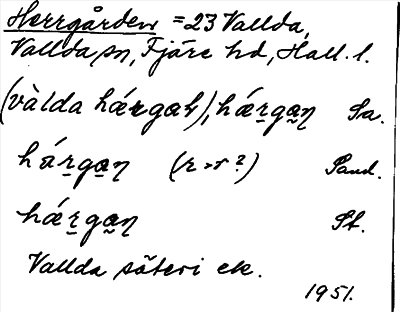 Herrgården = 23 Vallda,
Vallda sn, Fjäre hd, Hall. l.
(vàlda hǽrgaɳ), hǽr̠ga̰ɳ Sa.
hár̠ga̠ɳ (r > r ?) Sand.
hǽr̠ga̰ɳ St.
Vallda säteri ek.
1951.